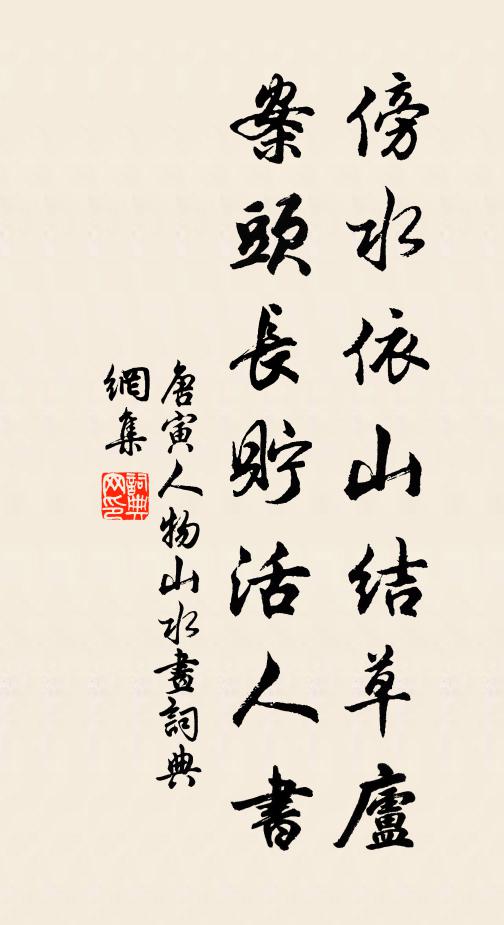 傍水依山結草廬
案頭長貯活人書
唐寅人物山水畫詞典
網集
詞典
网印